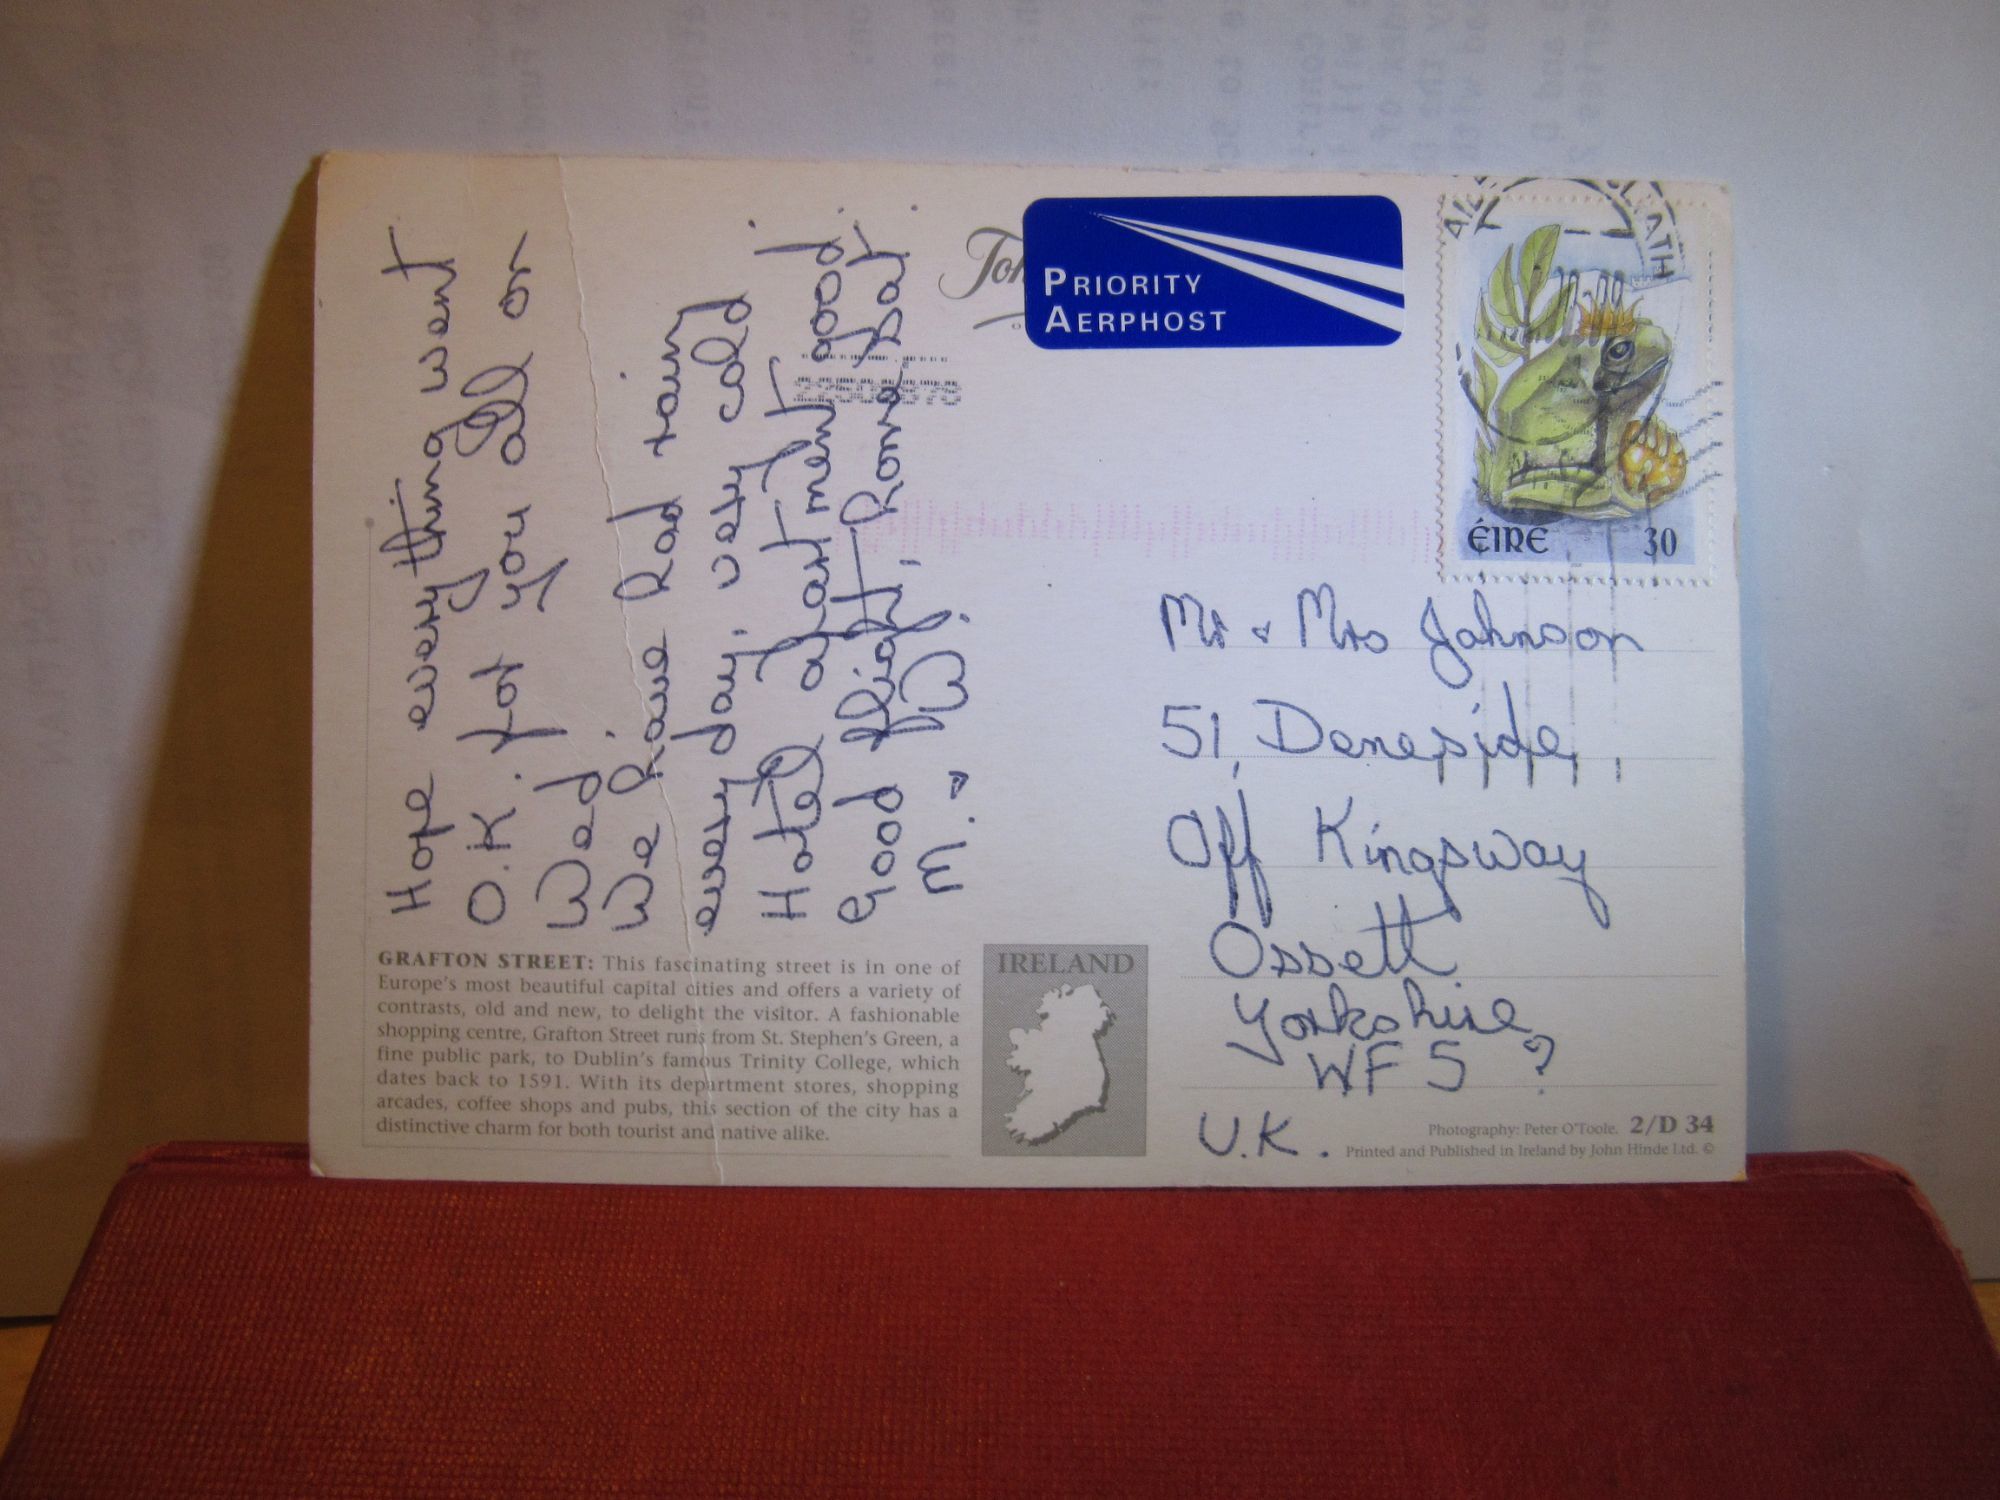 Hope everything went
O.K. for you all on
Wed
We have had rain
every day, very cold.
Hotel apartment good.
Good flight, home Sat.
M. & W.
GRAFTON STREET: This fascinating street is in one of
Europe's most beautiful capital cities and offers a variety of
contrasts, old and new, to delight the visitor. A fashionable
shopping centre, Grafton Street runs from St. Stephen's Green, a
fine public park, to Dublin's famous Trinity College, which
dates back to 1591. With its department stores, shopping
arcades, coffee shops and pubs, this section of the city has a
distinctive charm for both tourist and native alike.
IRELAND
PRIORITY
AERPHOST
ÉIRE 30
Mr & Mrs Johnson
51, Deneside,
Off Kingsway
Ossett
Yorkshire
WF5 ?
U.K.
Photography: Peter O'Toole. 2/D 34
Printed and Published in Ireland by John Hinde Ltd. ©